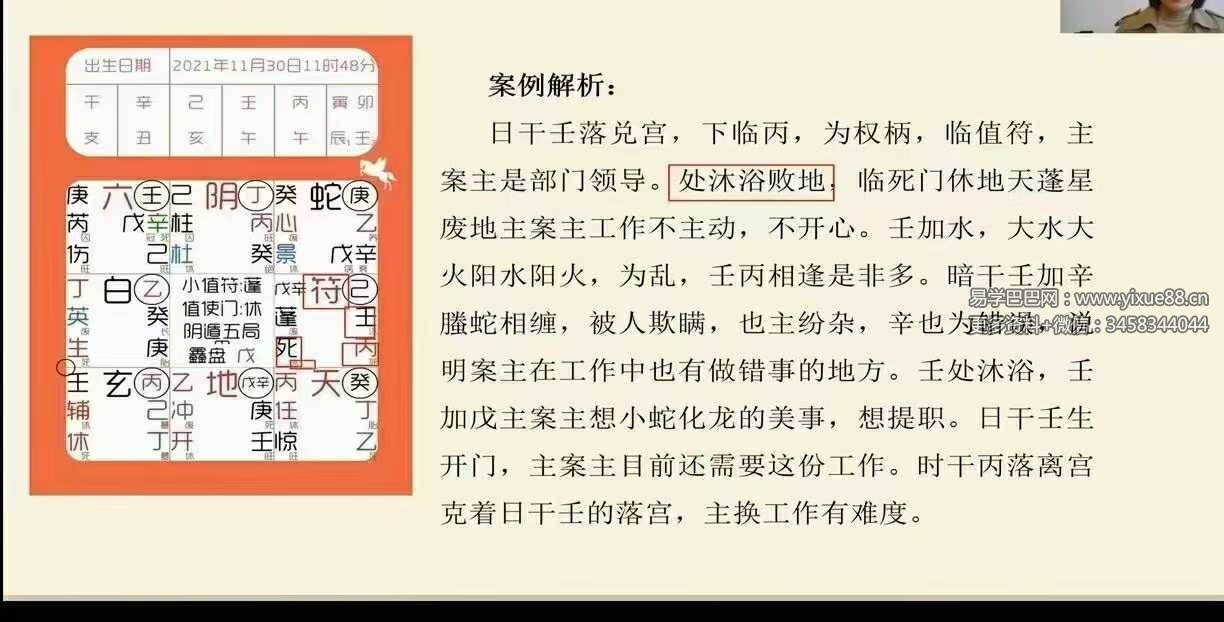 出生日期 2021年11月30日11时48分
干 辛 己 壬 丙 寅 卯
支 丑 亥 午 午 辰 壬
庚 六 壬 己 阴 丁 癸 蛇 庚
芮 戊 辛 柱 丙 心 乙
伤 己 杜 癸 景 戊辛
丁 白 乙 小值符:蓬 戊辛 符 己
英 癸 值使门:休 蓬 壬
生 庚 阴遁五局 死 丙
鑫盘 戊
壬 玄 丙 乙 地 戊辛 丙 天 癸
辅 己 冲 庚 任 丁
休 丁 开 壬 惊 乙
案例解析：
日干壬落兑宫，下临丙，为权柄，临值符，主
案主是部门领导。处沐浴败地，临死门休地天蓬星
废地主案主工作不主动，不开心。壬加水，大水大
火阳水阳火，为乱，壬丙相逢是非多。暗干壬加辛
螣蛇相缠，被人欺瞒，也主纷杂，辛也为错误，说
易学巴巴网：www.yixue88.cn
更多资料+微信：3458344044
明案主在工作中也有做错事的地方。壬处沐浴，壬
加戊主案主想小蛇化龙的美事，想提职。日干壬生
开门，主案主目前还需要这份工作。时干丙落离宫
克着日干壬的落宫，主换工作有难度。